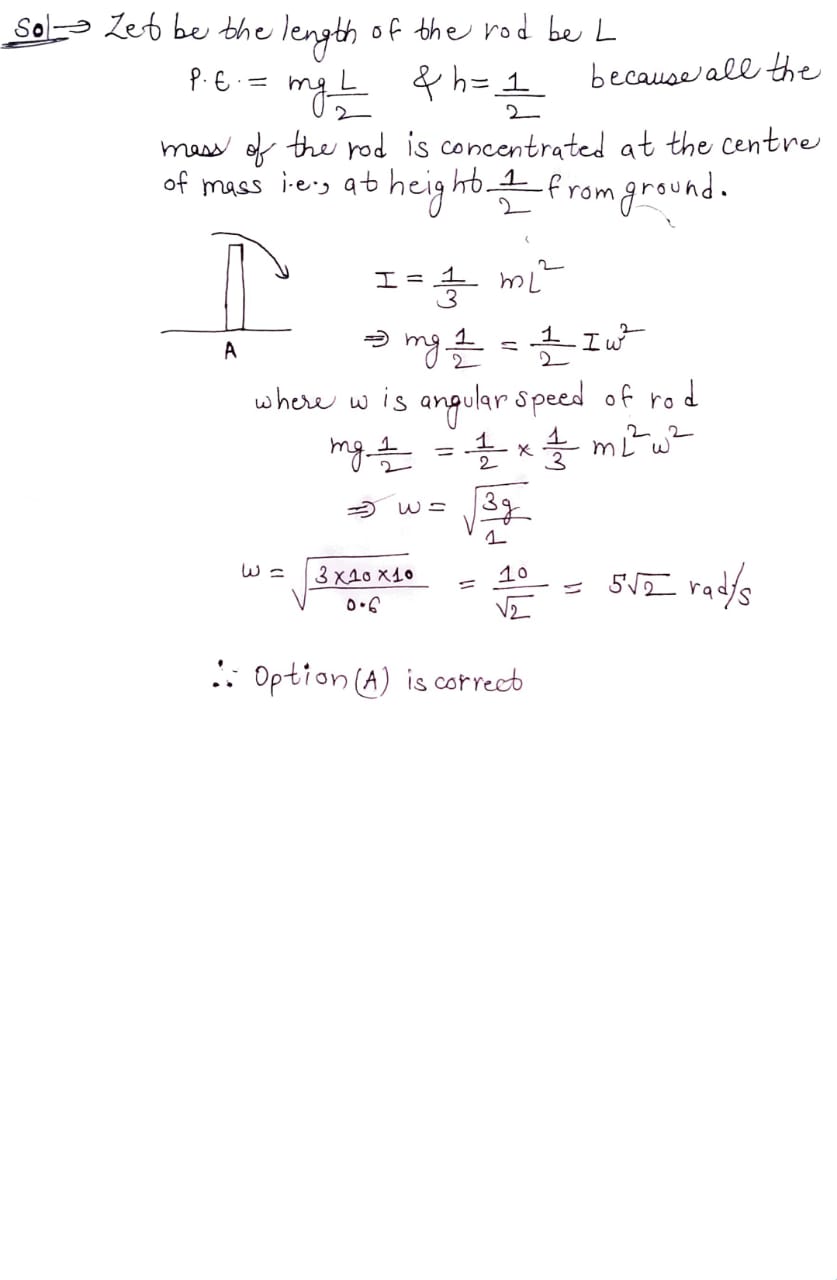 Sol→ Let be the length of the rod be L
P.E. = mg L/2 & h = 1/2 because all the
mass of the rod is concentrated at the centre
of mass i.e., at height 1/2 from ground.
I = 1/3 mL²
⇒ mg 1/2 = 1/2 Iw²
A
where w is angular speed of rod
mg 1/2 = 1/2 × 1/3 mL²w²
⇒ w = √(3g/1)
w = √(3×10×10/0.6) = 10/√2 = 5√2 rad/s
∴ Option (A) is correct